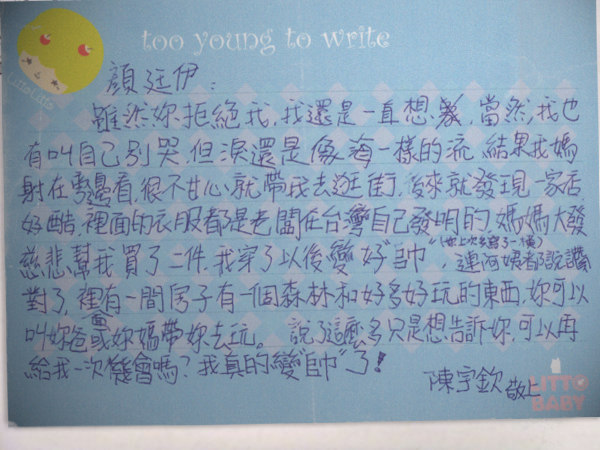 too young to write
顏廷伊：
雖然妳拒絕我,我還是一直想,當然,我也
有叫自己別哭,但淚還是像海一樣的流,結果我媽
射在看,很不甘心,就帶我去逛街,後來就發現一家店
好酷,裡面的衣服都是老闆在台灣自己發明的,媽媽大發
慈悲幫我買了二件,我穿了以後變好"帥"(上次多寫了一橫)連阿姨都說讚
對了,裡有一間房子有一個森林和好多好玩的東西,妳可以
叫妳爸或妳媽帶妳去玩。說了這麼多只是想告訴妳,可以再
給我一次機會嗎?我真的變"帥"了!
陳宇欽敬上
LITTO
BABY